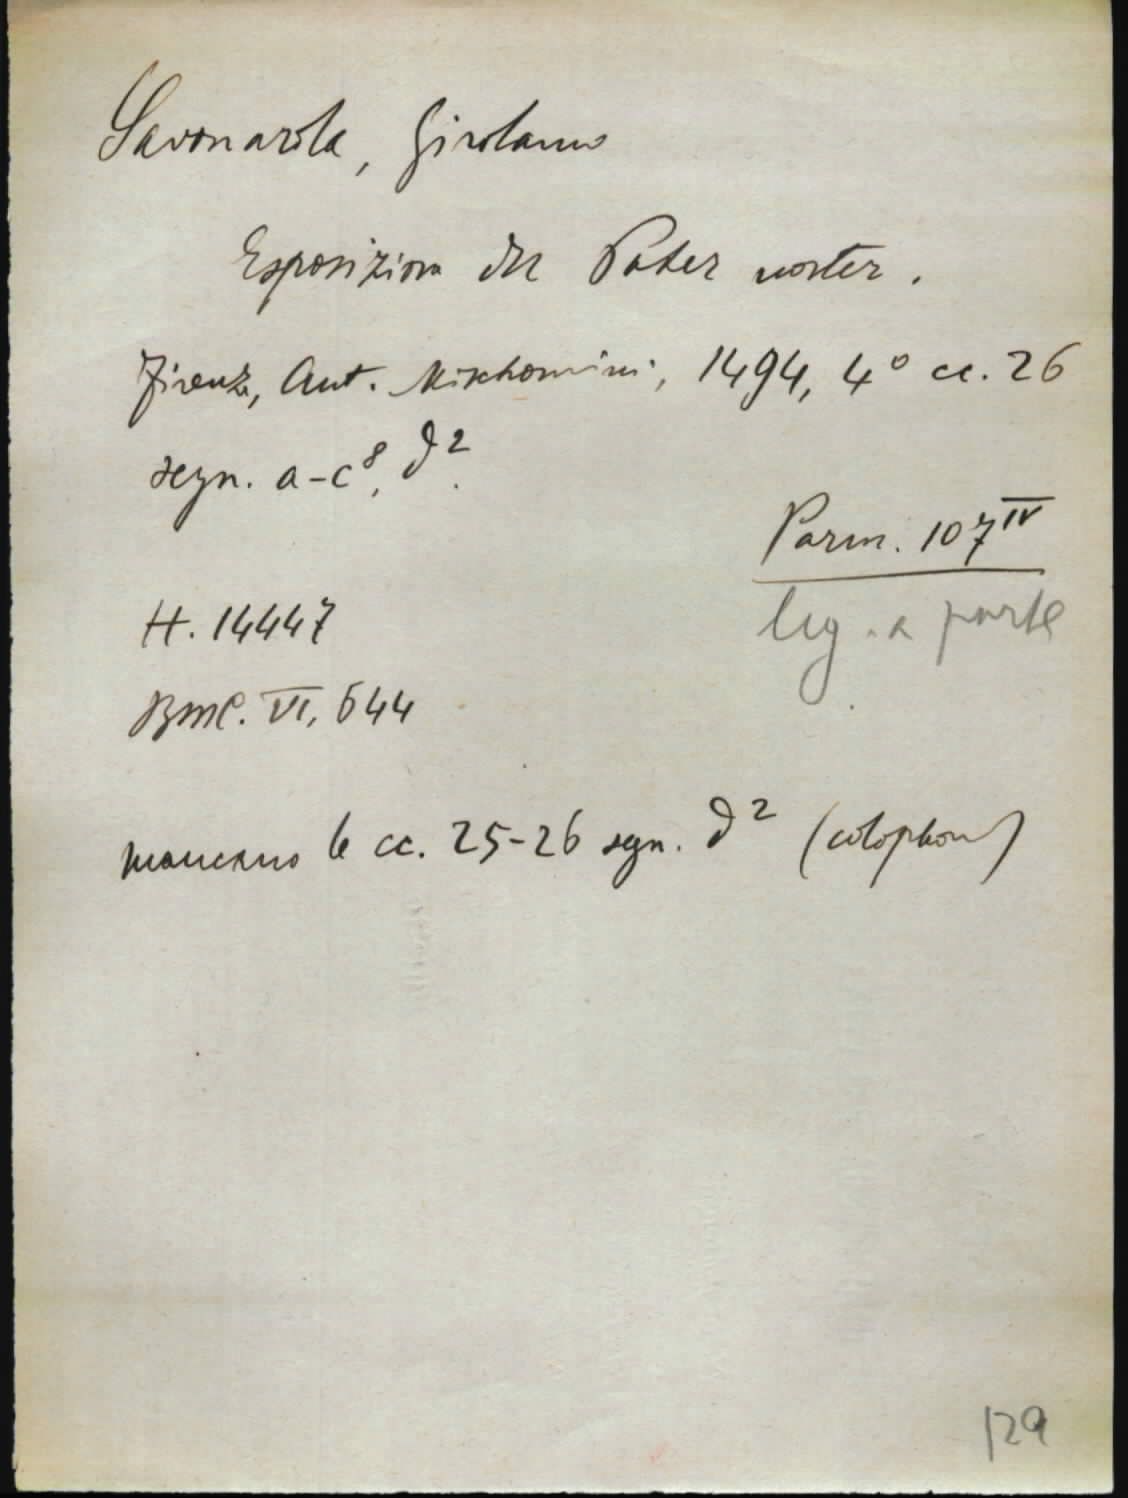 Savonarola, Girolamo
Esposizione del Pater noster.
Firenze, Ant. Mischomini, 1494, 4° cc. 26
segn. a-c⁸, d².
Parm. 107 IV
leg. a parte
H. 14447
BMC. VI, 644
mancano le cc. 25-26 segn. d² (colophon)
129